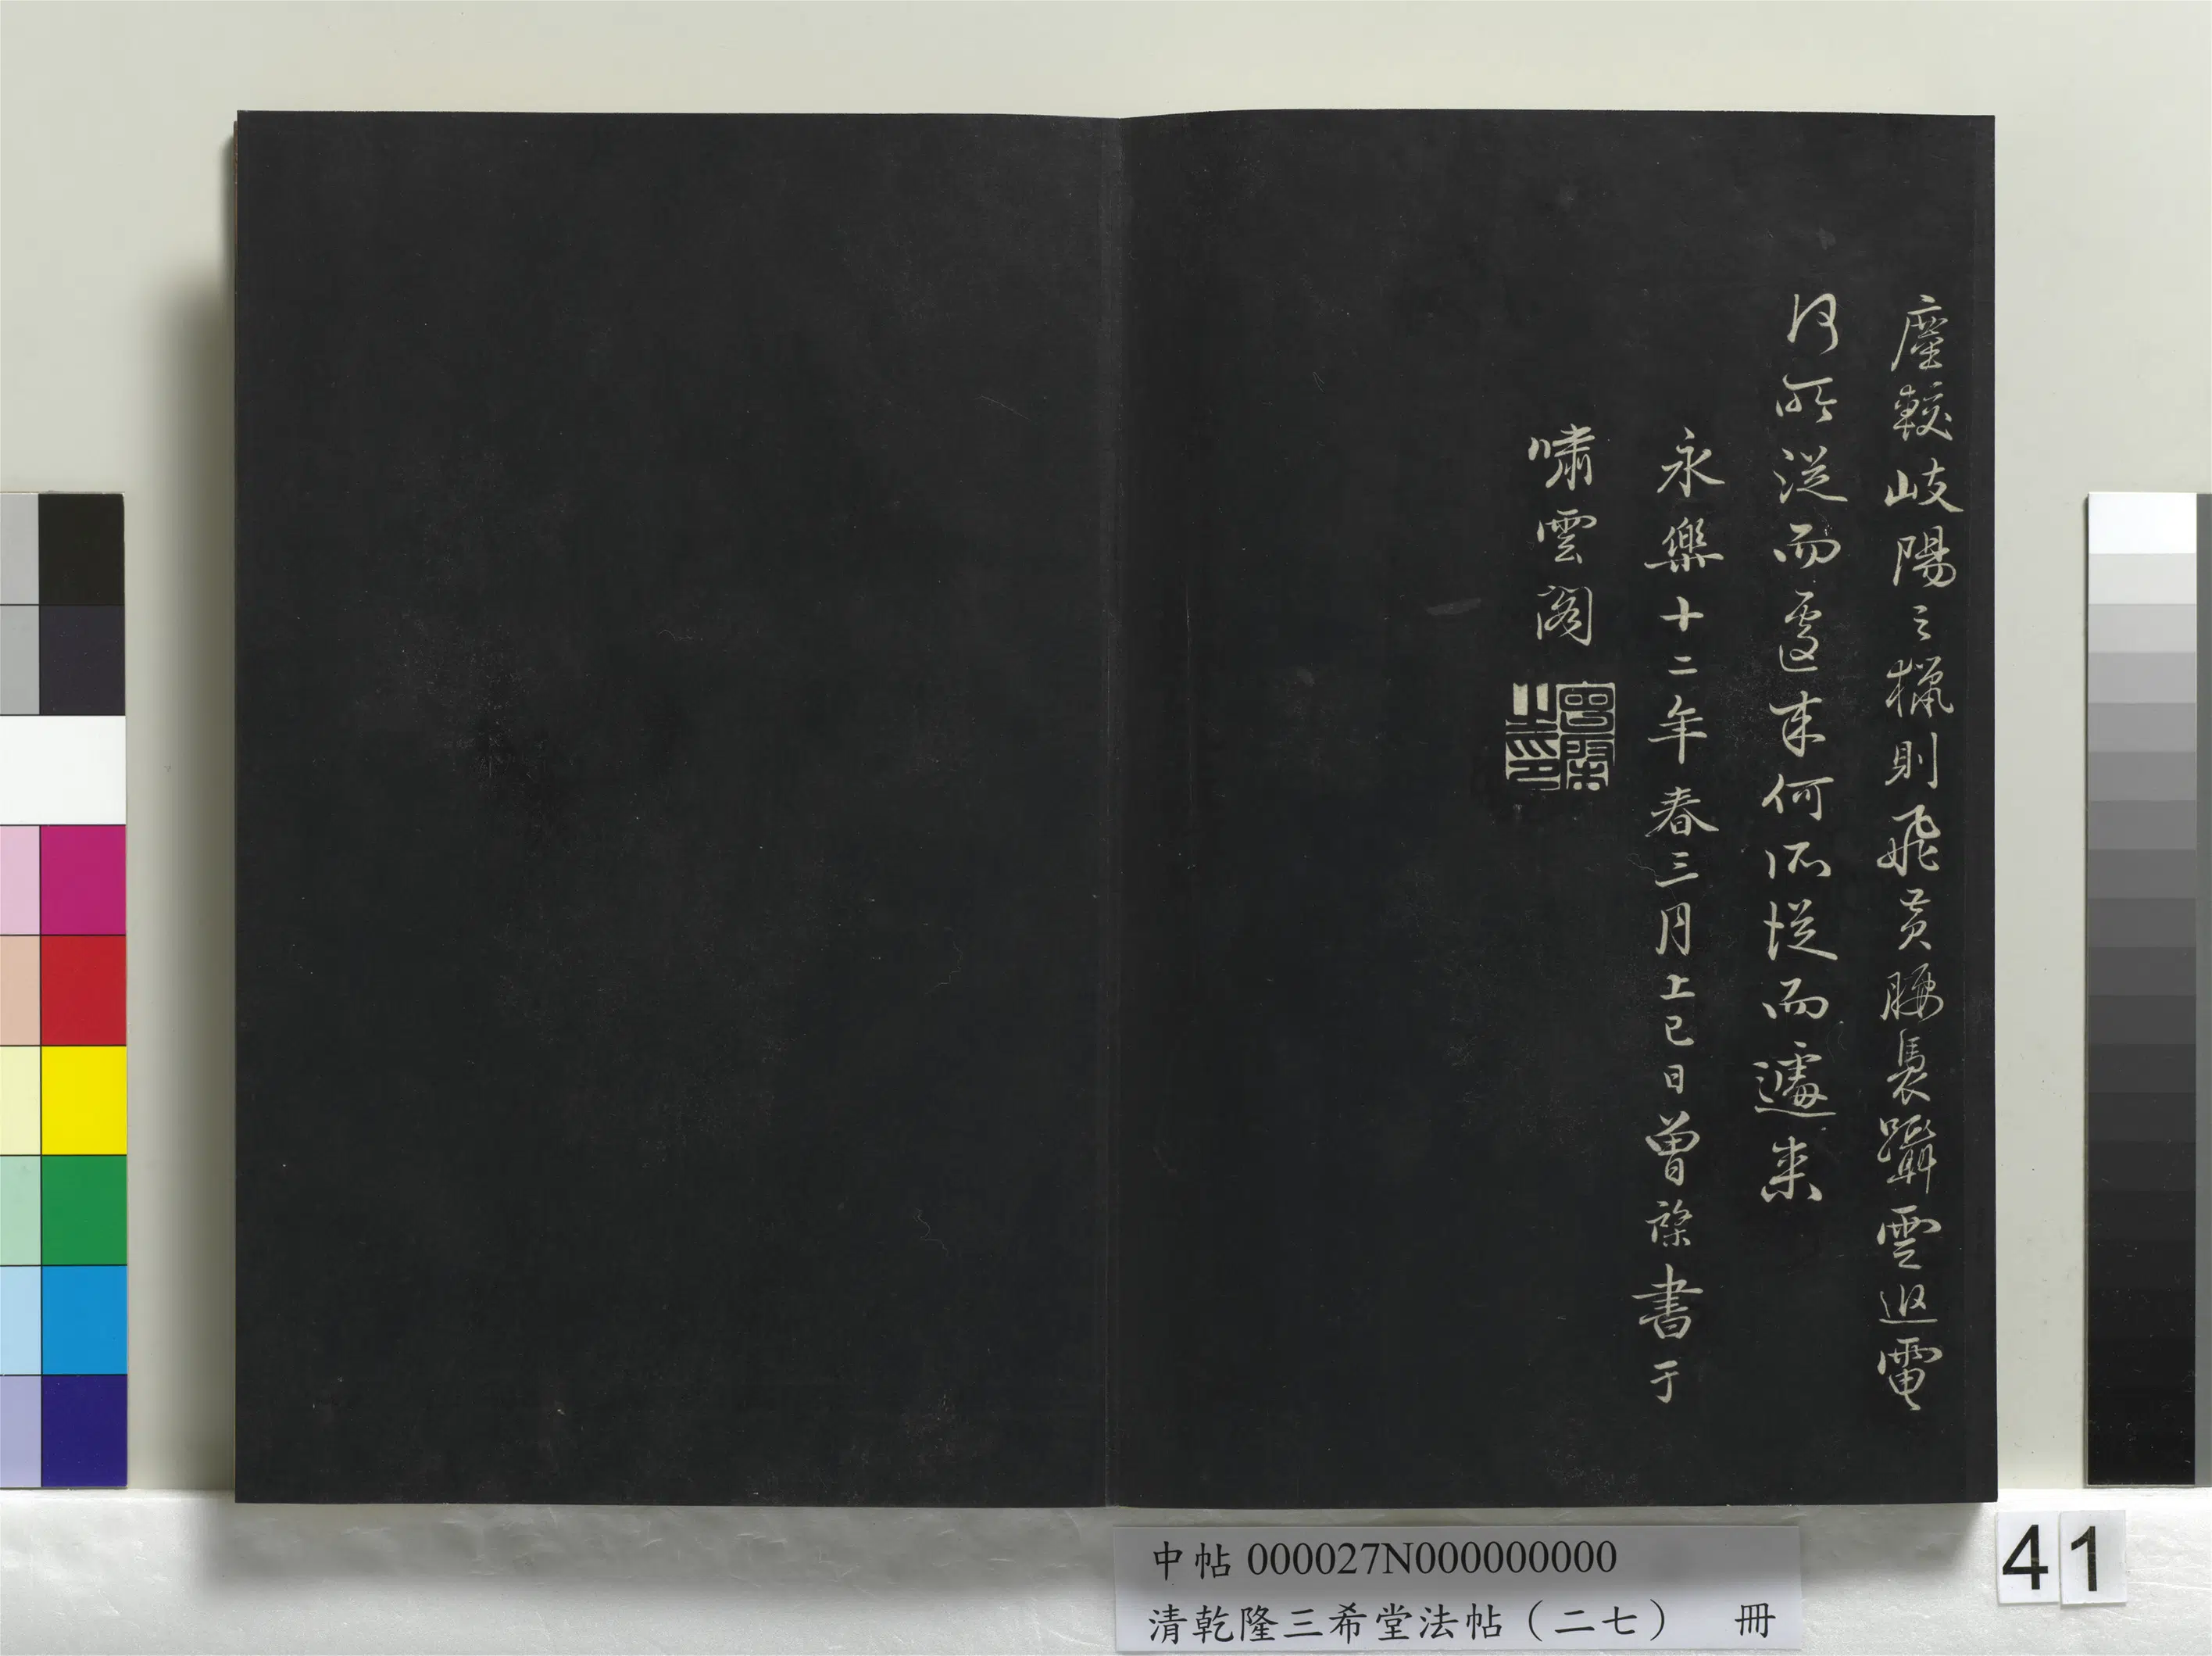 塵較岐陽之獵則飛黃腰褭躡雲追電
何所從而遽来何所從而遽来
永樂十二年春三月上巳日曾棨書于
嘯雲閣
曾棨之印
中帖 000027N000000000
清乾隆三希堂法帖（二七） 冊
41